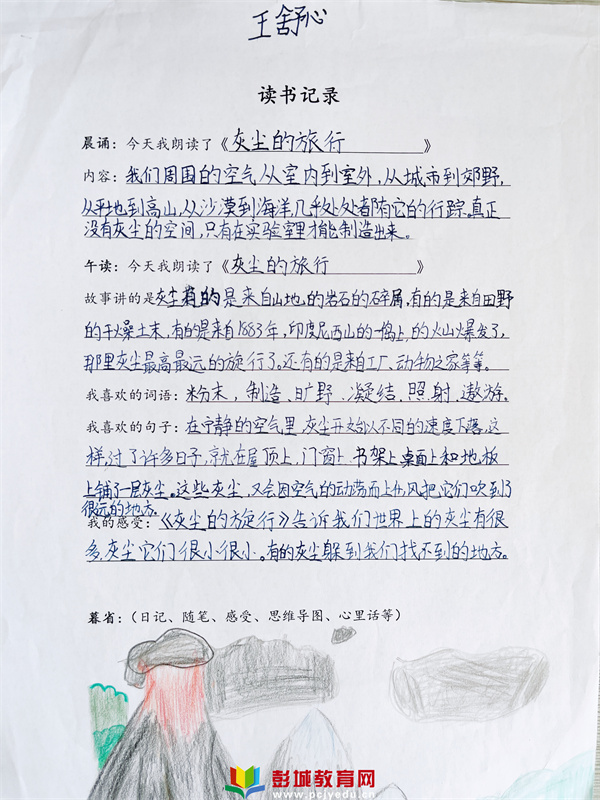 王舒心
读书记录
晨诵：今天我朗读了《灰尘的旅行》
内容：我们周围的空气从室内到室外，从城市到郊野，
从平地到高山，从沙漠到海洋，几乎处处都有它的行踪。真正
没有灰尘的空间，只有在实验室里才能制造出来。
午读：今天我朗读了《灰尘的旅行》
故事讲的是灰尘有的是来自山地的岩石的碎屑，有的是来自田野
的干燥土末，有的是来自1883年，印度尼西山的一捣上，的火山爆发了，
那里灰尘最高最远的旅行了。还有的是来自工厂、动物之家等等。
我喜欢的词语：粉末，制造、旷野、凝结、照射、遨游。
我喜欢的句子：在宁静的空气里，灰尘开始以不同的速度下落，这
样，过了许多日子，京就在屋顶上，门窗上、书架上桌面上和地板
上铺了一层灰尘。这些灰尘，又会因空气的动荡而上升，风把它们吹到了
很远的地方。
我的感受：《灰尘的旋行》告诉我们世界上的灰尘有很
多，灰尘它们很小很小。有的灰尘躲到我们找不到的地方。
暮省：（日记、随笔、感受、思维导图、心里话等）
彭城教育网
www.pcjyedu.cn